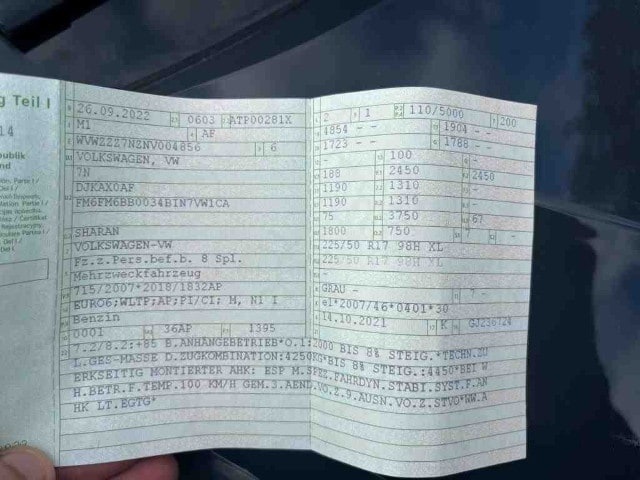 g Teil I
14
publik
nd
26.09.2022 0603 ATP00281X
M1 AF
WVWZZZ7NZNV004856 6
VOLKSWAGEN, VW
7N
DJKAX0AF
FM6FM6BB0034BIN7VW1CA
SHARAN
VOLKSWAGEN-VW
Fz.z.Pers.bef.b. 8 Spl.
Mehrzweckfahrzeug
715/2007*2018/1832AP
EURO6;WLTP;AP;PI/CI; H, N1 I
Benzin
0001 36AP 1395
2 1 110/5000 200
4854 - - 1904 - -
1723 - - 1788 - -
- 100 -
188 2450 2450
1190 1310 -
1190 1310 -
75 3750 67
1800 750 - -
225/50 R17 98H XL
225/50 R17 98H XL
-
GRAU - 7 -
e1*2007/46*0401*30
14.10.2021 K GJ236724
7.2/8.2;+85 B.ANHÄNGEBETRIEB*O.1:2000 BIS 8% STEIG.*TECHN.ZU
L.GES-MASSE D.ZUGKOMBINATION:4250KG*BIS 8% STEIG.:4450*BEI W
ERKSEITIG MONTIERTER AHK: ESP M.SPEZ.FAHRDYN.STABI.SYST.F.AN
H.BETR.F.TEMP.100 KM/H GEM.3.AEND.VO.Z.9.AUSN.VO.Z.STVO*WW.A
HK LT.EGTG*